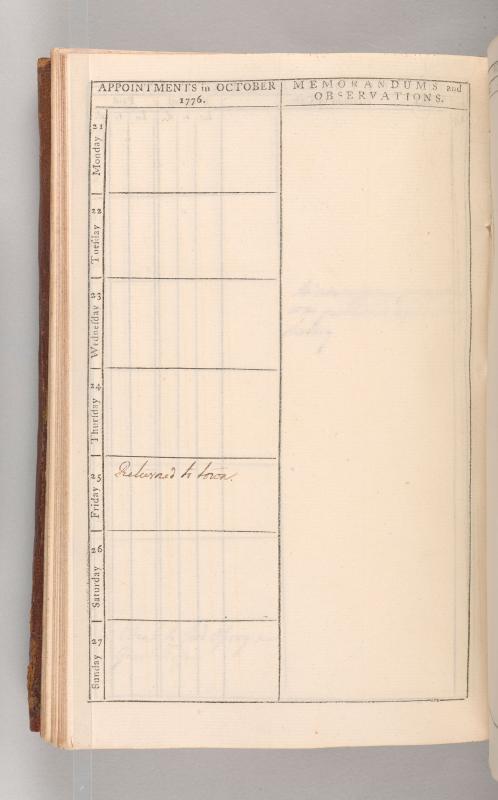 APPOINTMENTS in OCTOBER
1776.
MEMORANDUMS and
OBSERVATIONS.
Monday 21
Tueſday 22
Wedneſday 23
Thurſday 24
Friday 25
Returned to town.
Saturday 26
Sunday 27